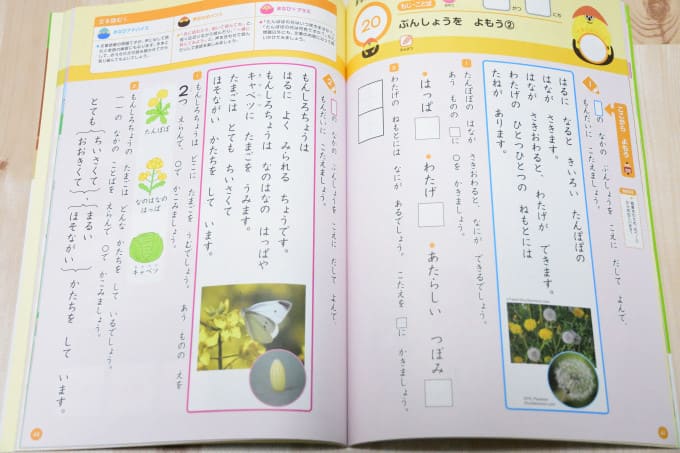 もじ・ことば
20
ぶんしょうを よもう②
ここから よもう
1
の なかの ぶんしょうを こえに だして よんで、
もんだいに こたえましょう。
はるに なると きいろい たんぽぽの
はなが さきます。
はなが さきおわると、わたげが できます。
わたげの ひとつひとつの ねもとには
たねが あります。
たんぽぽの はなが さきおわると、なにが できるでしょう。
あう ものの □に ○を かきましょう。
はっぱ
わたげ
あたらしい つぼみ
わたげの ねもとには なにが あるでしょう。こたえを □に かきましょう。
2
の なかの ぶんしょうを こえに だして よんで、
もんだいに こたえましょう。
もんしろちょうは
はるに よく みられる ちょうです。
もんしろちょうは なのはなの はっぱや
キャベツに たまごを うみます。
たまごは とても ちいさくて
ほそながい かたちを して います。
もんしろちょうは どこに たまごを うむでしょう。 あう ものの えを
2つ えらんで、○で かこみましょう。
たんぽぽ
なのはなの
はっぱ
キャベツ
もんしろちょうの たまごは どんな かたちを して いるでしょう。
の なかの ことばを えらんで ○で かこみましょう。
とても
ちいさくて
おおきくて
、
まるい
ほそながい
かたちを して います。